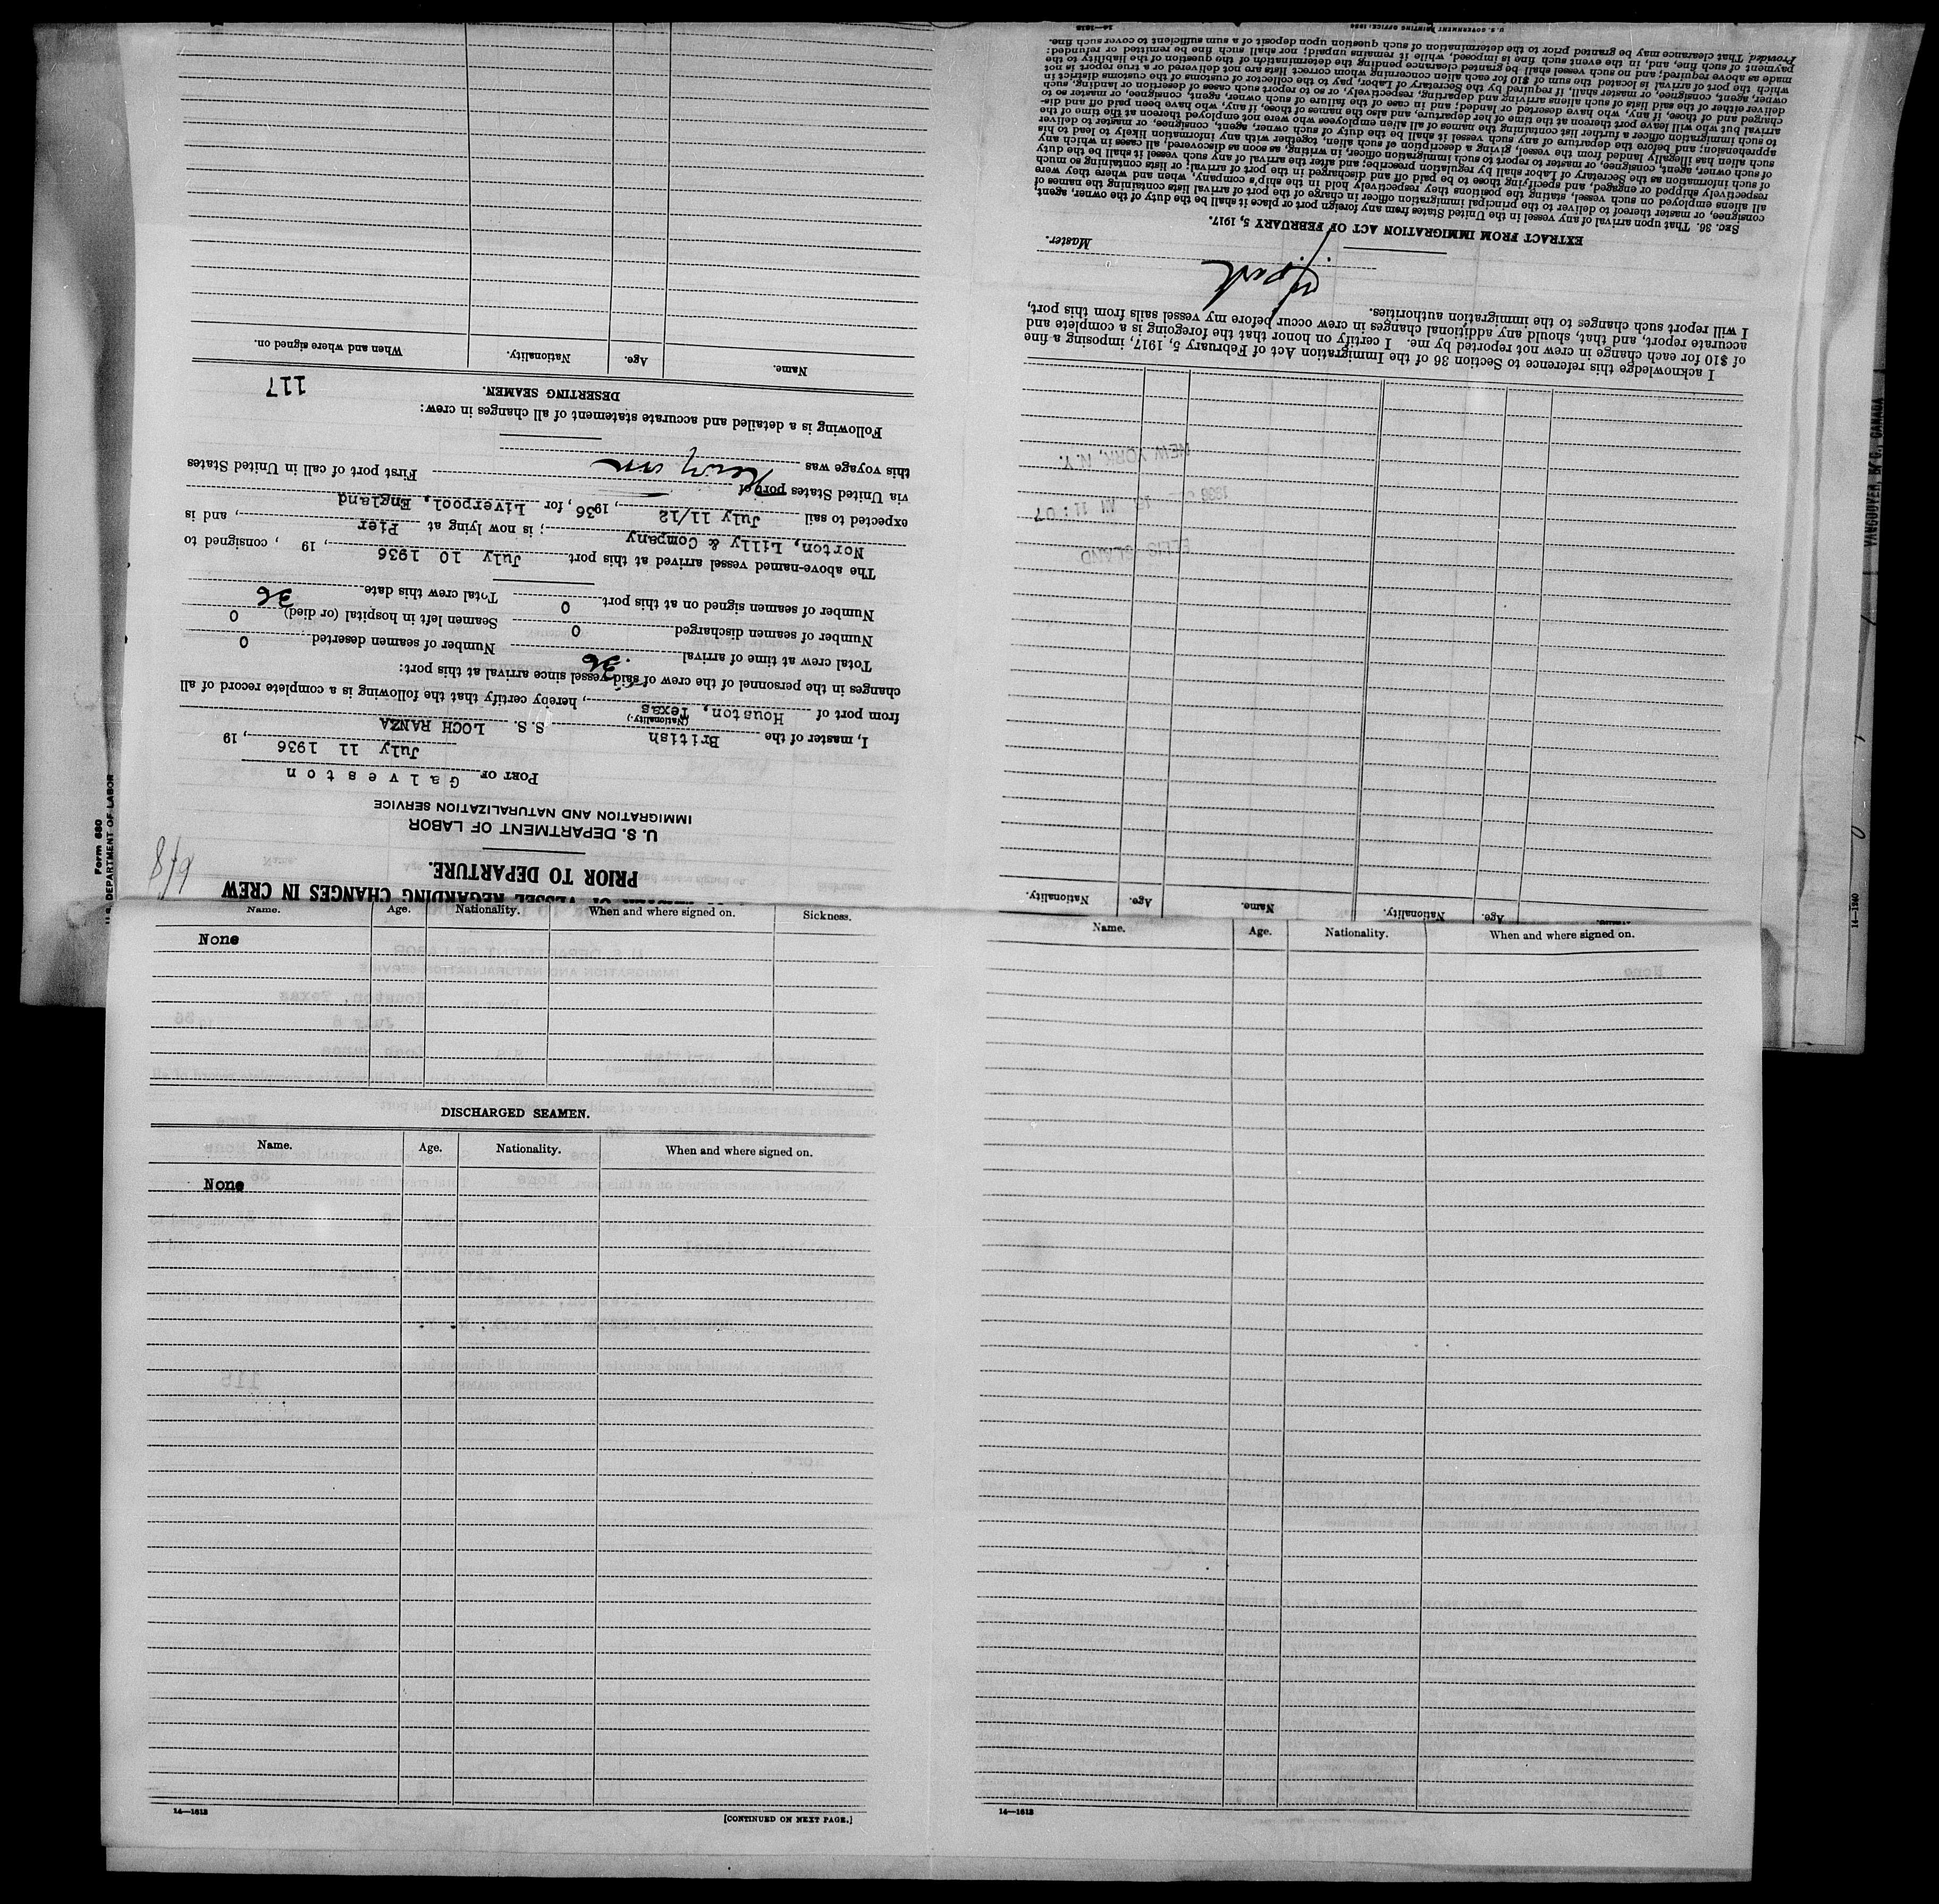 Form 680
U. S. DEPARTMENT OF LABOR
VESSEL REGARDING CHANGES IN CREW
PRIOR TO DEPARTURE.
U. S. DEPARTMENT OF LABOR
IMMIGRATION AND NATURALIZATION SERVICE
PORT OF Galveston
July 11 1936, 19
I, master of the British S.S. LOCH RANZA
(Nationality.)
from port of Houston, Texas, hereby certify that the following is a complete record of all
changes in the personnel of the crew of said vessel since arrival at this port:
Total crew at time of arrival 36. Number of seamen deserted 0
Number of seamen discharged 0 Seamen left in hospital (or died) 0
Number of seamen signed on at this port 0 Total crew this date 36
The above-named vessel arrived at this port July 10 1936, 19 , consigned to
Norton, Lilly & Company; is now lying at Pier, and is
expected to sail July 11/12, 1936, for Liverpool, England
via United States port of First port of call in United States
this voyage was
Following is a detailed and accurate statement of all changes in crew:
DESERTING SEAMEN. 117
Name. Age. Nationality. When and where signed on.
Name. Age. Nationality. Name. Age. Nationality.
ELLIS ISLAND
NEW YORK, N.Y.
I acknowledge this reference to Section 36 of the Immigration Act of February 5, 1917, imposing a fine
of $10 for each change in crew not reported by me. I certify on honor that the foregoing is a complete and
accurate report, and that, should any additional changes in crew occur before my vessel sails from this port,
I will report such changes to the immigration authorities.
Master.
EXTRACT FROM IMMIGRATION ACT OF FEBRUARY 5, 1917.
SEC. 36. That upon arrival of any vessel in the United States from any foreign port or place it shall be the duty of the owner, agent,
consignee, or master thereof to deliver to the principal immigration officer in charge of the port of arrival lists containing the names of
all aliens employed on such vessel, stating the positions they respectively hold in the ship's company, when and where they were
respectively shipped or engaged, and specifying those to be paid off and discharged in the port of arrival; or lists containing so much
of such information as the Secretary of Labor shall by regulation prescribe; and after the arrival of any such vessel it shall be the duty
of such owner, agent, consignee, or master to report to such immigration officer, in writing, as soon as discovered, all cases in which any
such alien has illegally landed from the vessel, giving a description of such alien, together with any information likely to lead to his
apprehension; and before the departure of any such vessel it shall be the duty of such owner, agent, consignee, or master to deliver
to such immigration officer a further list containing the names of all alien employees who were not employed thereon at the time of the
arrival but who will leave port thereon at the time of her departure, and also the names of those, if any, who have been paid off and dis-
charged and of those, if any, who have deserted or landed; and in case of the failure of such owner, agent, consignee, or master so to
deliver either of the said lists of such aliens arriving and departing, respectively, or so to report such cases of desertion or landing, such
owner, agent, consignee, or master, shall, if required by the Secretary of Labor, pay to the collector of customs of the customs district in
which the port of arrival is located the sum of $10 for each alien concerning whom correct lists are not delivered or a true report is not
made as above required; and no such vessel shall be granted clearance pending the determination of the question of the liability to the
payment of such fine, and, in the event such fine is imposed, while it remains unpaid; nor shall such fine be remitted or refunded:
Provided, That clearance may be granted prior to the determination of such question upon deposit of a sum sufficient to cover such fine.
14—1613 U. S. GOVERNMENT PRINTING OFFICE: 1934
VANCOUVER, B. C., CANADA
14—1240
Name. Age. Nationality. When and where signed on. Sickness.
None
DISCHARGED SEAMEN.
Name. Age. Nationality. When and where signed on.
None
14—1613 [CONTINUED ON NEXT PAGE.]
Name. Age. Nationality. When and where signed on.
14—1613